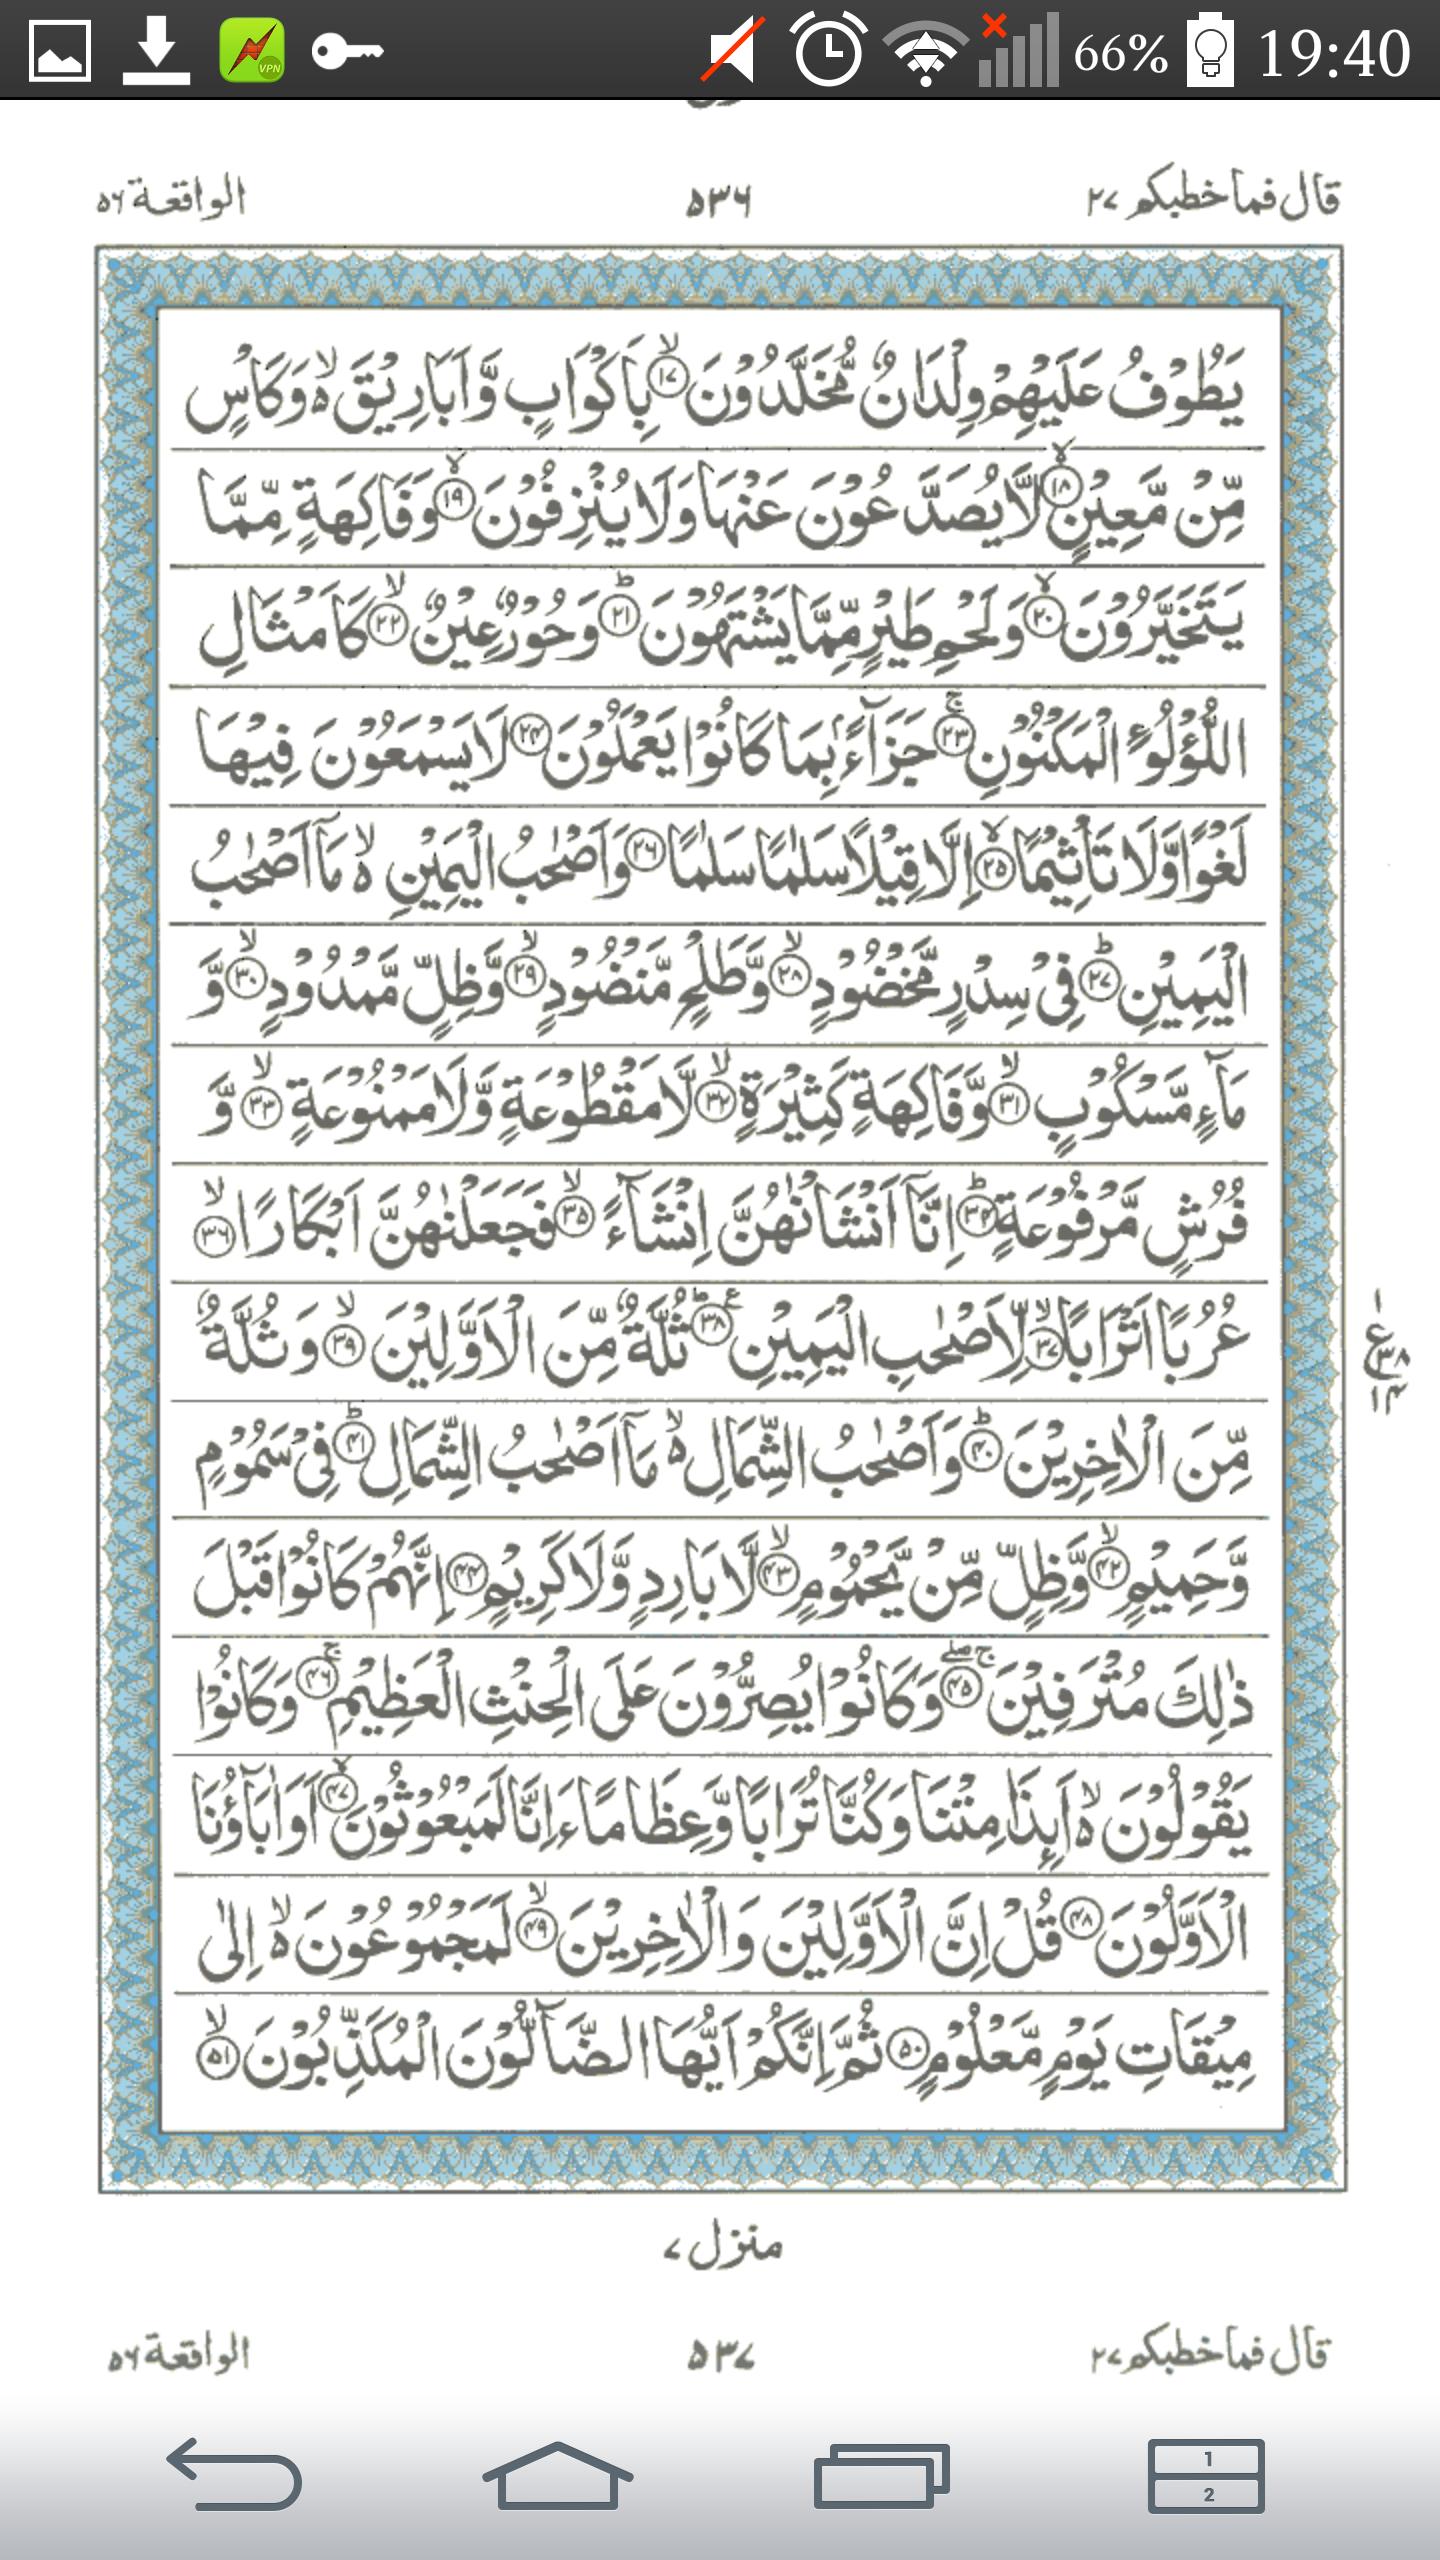 66% 19:40
قال فما خطبكم ۲۷ ۵۳۶ الواقعة ۵۶
يَطُوْفُ عَلَيْهِمْ وِلْدَانٌ مُّخَلَّدُوْنَ ۙ﴿۱۷﴾ بِاَكْوَابٍ وَّ اَبَارِيْقَ ۙ۬ وَكَاْسٍ
مِّنْ مَّعِيْنٍ ۙ﴿۱۸﴾ لَّا يُصَدَّعُوْنَ عَنْهَا وَلَا يُنْزِفُوْنَ ۙ﴿۱۹﴾ وَفَاكِهَةٍ مِّمَّا
يَتَخَيَّرُوْنَ ۙ﴿۲۰﴾ وَلَحْمِ طَيْرٍ مِّمَّا يَشْتَهُوْنَ ؕ﴿۲۱﴾ وَحُوْرٌ عِيْنٌ ۙ﴿۲۲﴾ كَاَمْثَالِ
اللُّؤْلُؤِ الْمَكْنُوْنِ ۚ﴿۲۳﴾ جَزَآءًۢ بِمَا كَانُوْا يَعْمَلُوْنَ ﴿۲۴﴾ لَا يَسْمَعُوْنَ فِيْهَا
لَغْوًا وَّلَا تَاْثِيْمًا ۙ﴿۲۵﴾ اِلَّا قِيْلًا سَلٰمًا سَلٰمًا ﴿۲۶﴾ وَاَصْحٰبُ الْيَمِيْنِ ۙ۬ مَاۤ اَصْحٰبُ
الْيَمِيْنِ ؕ﴿۲۷﴾ فِيْ سِدْرٍ مَّخْضُوْدٍ ۙ﴿۲۸﴾ وَّطَلْحٍ مَّنْضُوْدٍ ۙ﴿۲۹﴾ وَّظِلٍّ مَّمْدُوْدٍ ۙ﴿۳۰﴾ وَّ
مَآءٍ مَّسْكُوْبٍ ۙ﴿۳۱﴾ وَّفَاكِهَةٍ كَثِيْرَةٍ ۙ﴿۳۲﴾ لَّا مَقْطُوْعَةٍ وَّلَا مَمْنُوْعَةٍ ۙ﴿۳۳﴾ وَّ
فُرُشٍ مَّرْفُوْعَةٍ ؕ﴿۳۴﴾ اِنَّاۤ اَنْشَاْنٰهُنَّ اِنْشَآءً ۙ﴿۳۵﴾ فَجَعَلْنٰهُنَّ اَبْكَارًا ۙ﴿۳۶﴾
عُرُبًا اَتْرَابًا ۙ﴿۳۷﴾ لِّاَصْحٰبِ الْيَمِيْنِ ؕ﴿۳۸﴾ ع ثُلَّةٌ مِّنَ الْاَوَّلِيْنَ ۙ﴿۳۹﴾ وَثُلَّةٌ
۱ ع ۳۸ ۱۴
مِّنَ الْاٰخِرِيْنَ ؕ﴿۴۰﴾ وَاَصْحٰبُ الشِّمَالِ ۙ۬ مَاۤ اَصْحٰبُ الشِّمَالِ ؕ﴿۴۱﴾ فِيْ سَمُوْمٍ
وَّحَمِيْمٍ ۙ﴿۴۲﴾ وَّظِلٍّ مِّنْ يَّحْمُوْمٍ ۙ﴿۴۳﴾ لَّا بَارِدٍ وَّلَا كَرِيْمٍ ﴿۴۴﴾ اِنَّهُمْ كَانُوْا قَبْلَ
ذٰلِكَ مُتْرَفِيْنَ ۚۖ﴿۴۵﴾ وَكَانُوْا يُصِرُّوْنَ عَلَى الْحِنْثِ الْعَظِيْمِ ۚ﴿۴۶﴾ وَكَانُوْا
يَقُوْلُوْنَ ۙ۬ اَىِٕذَا مِتْنَا وَكُنَّا تُرَابًا وَّعِظَامًا ءَاِنَّا لَمَبْعُوْثُوْنَ ۙ﴿۴۷﴾ اَوَ اٰبَآؤُنَا
الْاَوَّلُوْنَ ﴿۴۸﴾ قُلْ اِنَّ الْاَوَّلِيْنَ وَالْاٰخِرِيْنَ ۙ﴿۴۹﴾ لَمَجْمُوْعُوْنَ ۙ۬ اِلٰى
مِيْقَاتِ يَوْمٍ مَّعْلُوْمٍ ﴿۵۰﴾ ثُمَّ اِنَّكُمْ اَيُّهَا الضَّآلُّوْنَ الْمُكَذِّبُوْنَ ۙ﴿۵۱﴾
منزل ۷
قال فما خطبكم ۲۷ ۵۳۷ الواقعة ۵۶
1
2